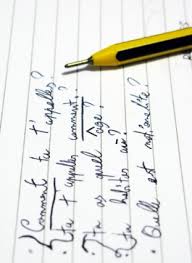 Comment tu t'appelles?
Tu t'appelles comment?
Tu as quel âge?
Tu habites où?
Quelle est